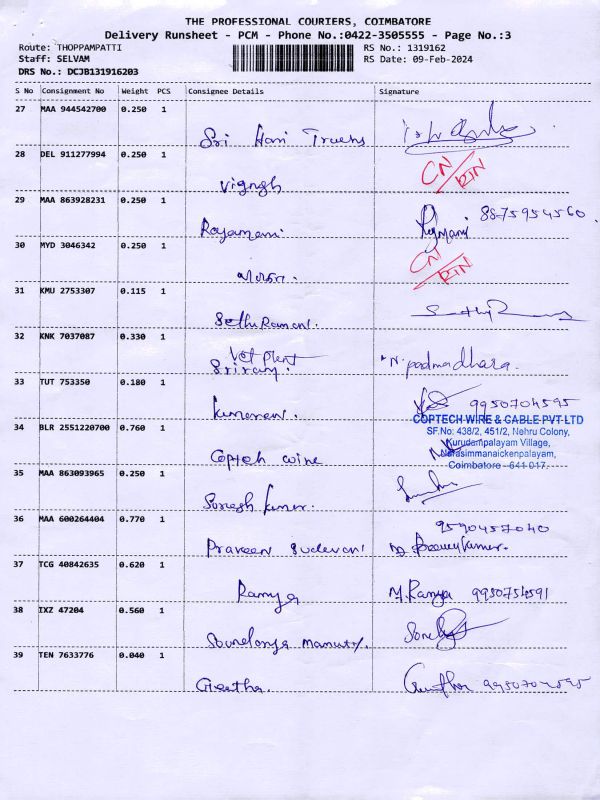 THE PROFESSIONAL COURIERS, COIMBATORE
Delivery Runsheet - PCM - Phone No.:0422-3505555 - Page No.:3
Route: THOPPAMPATTI RS No.: 1319162
Staff: SELVAM RS Date: 09-Feb-2024
DRS No.: DCJB131916203
S No Consignment No Weight PCS Consignee Details Signature
27 MAA 944542700 0.250 1
Sri Hari Truens
28 DEL 911277994 0.250 1
CN/RTN
Vignesh
29 MAA 863928231 0.250 1
Rajamani Rajmani 8875954560
30 MYD 3046342 0.250 1
CN/RTN
31 KMU 2753307 0.115 1
Sethu Ramani.
32 KNK 7037087 0.330 1
Vet plent
Sriram. N. padmadhara.
33 TUT 753350 0.180 1
Kumaran. 9950704595
34 BLR 2551220700 0.760 1
COPTECH WIRE & CABLE PVT LTD
SF.No: 438/2, 451/2, Nehru Colony,
Kurudampalayam Village,
Narasimmanaickenpalayam,
Coimbatore - 641 017.
Coptech wire
35 MAA 863093965 0.250 1
Suresh Kumar.
36 MAA 600264404 0.770 1
Praveen
37 TCG 40842635 0.620 1
Ramya M. Ramya 9950754591
38 IXZ 47204 0.560 1
39 TEN 7633776 0.040 1
Geetha. 9950704595